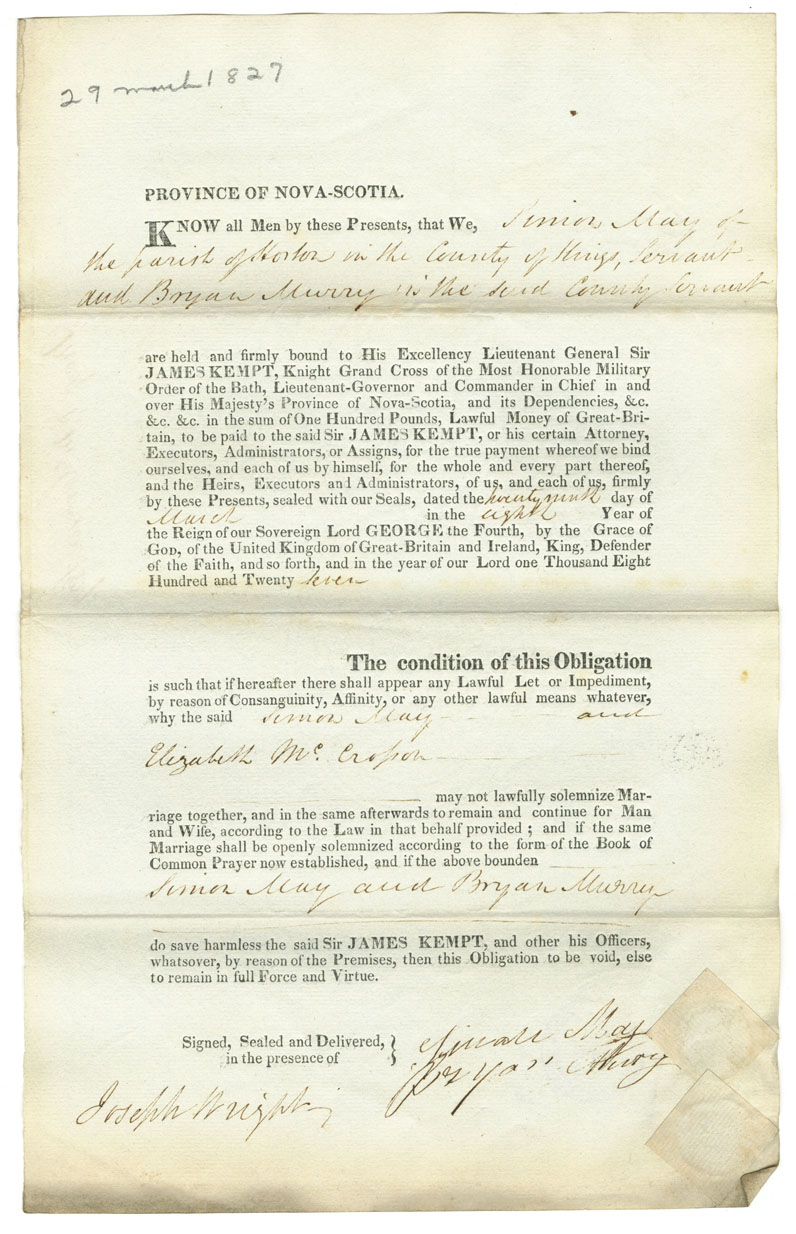 29 march 1827
PROVINCE OF NOVA-SCOTIA.
KNOW all Men by these Presents, that We, Simon May of
the parish of Horton in the County of Kings, Servant
and Bryan Murry in the said County Servant
are held and firmly bound to His Excellency Lieutenant General Sir
JAMES KEMPT, Knight Grand Cross of the Most Honorable Military
Order of the Bath, Lieutenant-Governor and Commander in Chief in and
over His Majesty's Province of Nova-Scotia, and its Dependencies, &c.
&c. &c. in the sum of One Hundred Pounds, Lawful Money of Great-Bri-
tain, to be paid to the said Sir JAMES KEMPT, or his certain Attorney,
Executors, Administrators, or Assigns, for the true payment whereof we bind
ourselves, and each of us by himself, for the whole and every part thereof,
and the Heirs, Executors and Administrators, of us, and each of us, firmly
by these Presents, sealed with our Seals, dated the twenty ninth day of
March in the eighth Year of
the Reign of our Sovereign Lord GEORGE the Fourth, by the Grace of
GOD, of the United Kingdom of Great-Britain and Ireland, King, Defender
of the Faith, and so forth, and in the year of our Lord one Thousand Eight
Hundred and Twenty seven
The condition of this Obligation
is such that if hereafter there shall appear any Lawful Let or Impediment,
by reason of Consanguinity, Affinity, or any other lawful means whatever,
why the said Simon May and
Elizabeth Mc. Crosson
may not lawfully solemnize Mar-
riage together, and in the same afterwards to remain and continue for Man
and Wife, according to the Law in that behalf provided ; and if the same
Marriage shall be openly solemnized according to the form of the Book of
Common Prayer now established, and if the above bounden
Simon May and Bryan Murry
do save harmless the said Sir JAMES KEMPT, and other his Officers,
whatsover, by reason of the Premises, then this Obligation to be void, else
to remain in full Force and Virtue.
Signed, Sealed and Delivered, }
in the presence of
May
Bryan
Joseph Wright